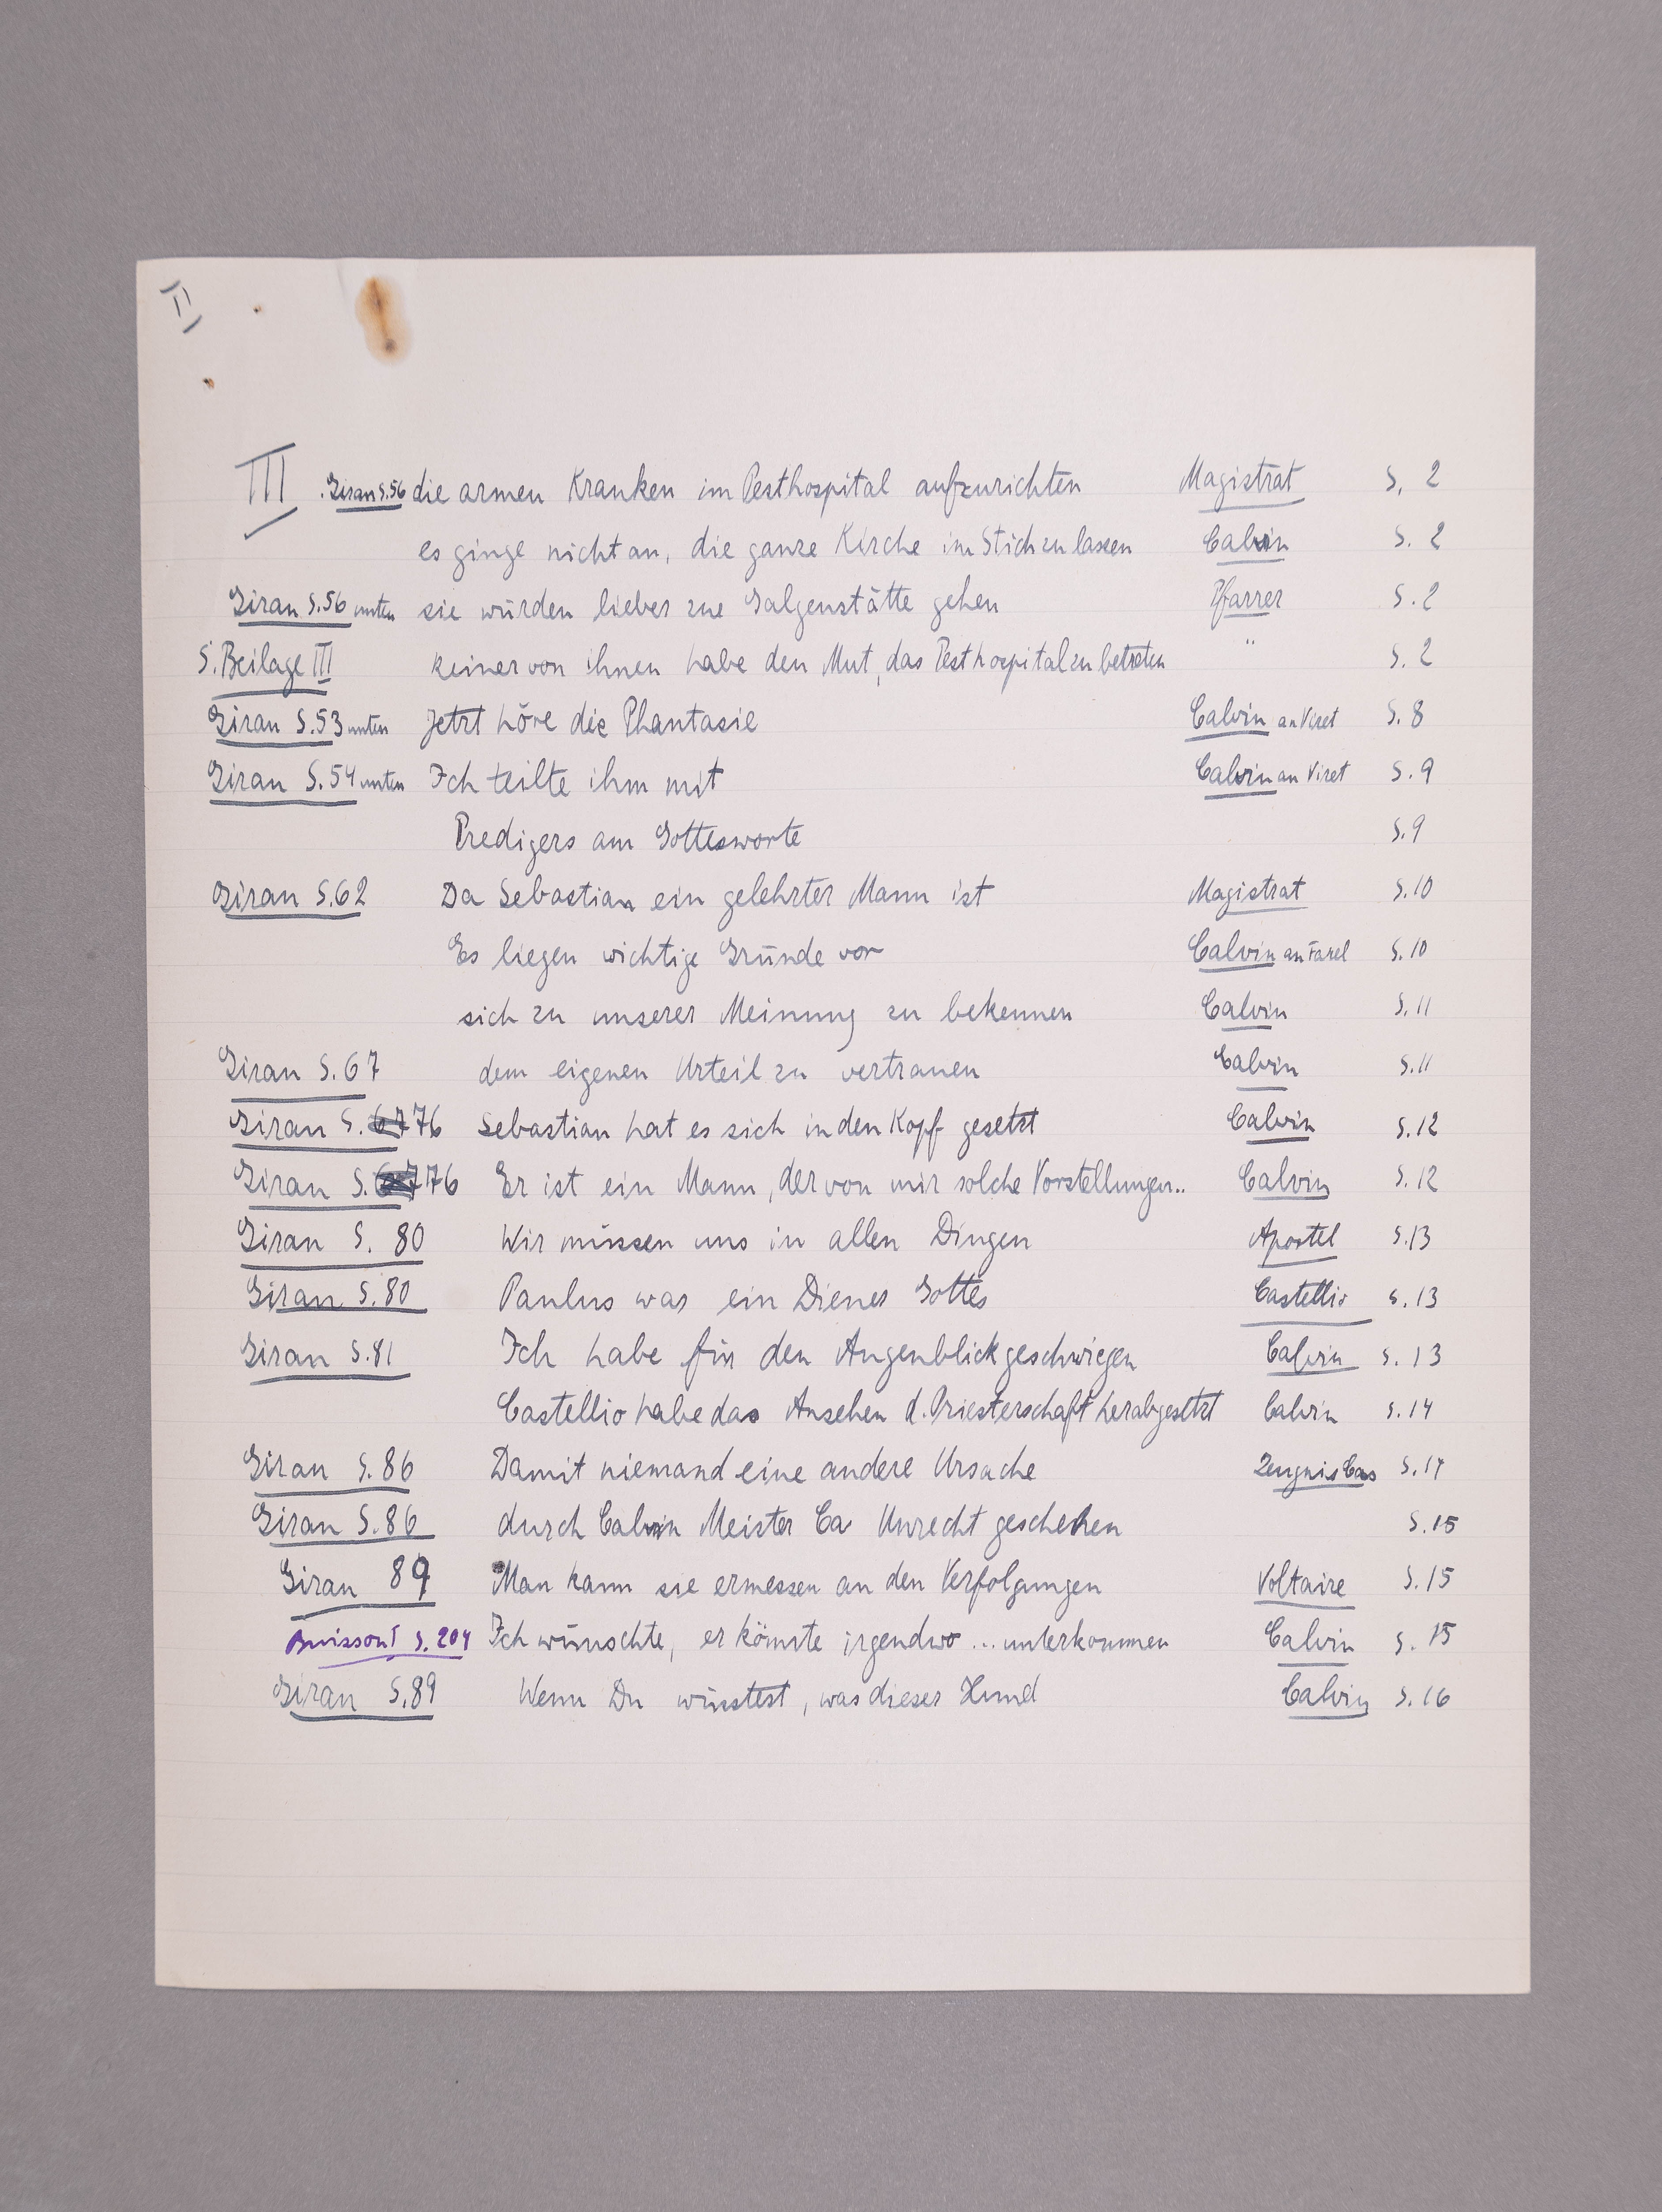 II
III Giran S.56 die armen Kranken im Pesthospital aufzurichten Magistrat S. 2
es ginge nicht an, die ganze Kirche im Stich zu lassen Calvin S. 2
Giran S.56 unten sie würden lieber zue Galgenstätte gehen Pfarrer S. 2
S. Beilage III keiner von ihnen habe den Mut, das Pesthospital zu betreten " S. 2
Giran S.53 unten Jetzt höre die Phantasie Calvin an Viret S. 8
Giran S.54 unten Ich teilte ihm mit Calvin an Viret S. 9
Predigers am Gottesworte S.9
Giran S.62 Da Sebastian ein gelehrter Mann ist Magistrat S.10
Es liegen wichtige Gründe vor Calvin an Farel S.10
sich zu unserer Meinung zu bekennen Calvin S.11
Giran S.67 dem eigenen Urteil zu vertrauen Calvin S.11
Giran S. 76 Sebastian hat es sich in den Kopf gesetzt Calvin S.12
Giran S. 76 Er ist ein Mann, der von mir solche Vorstellungen.. Calvin S.12
Giran S. 80 Wir müssen uns in allen Dingen Apostel S.13
Giran S.80 Paulus war ein Diener Gottes Castellio S.13
Giran S.81 Ich habe für den Augenblick geschwiegen Calvin S.13
Castellio habe das Ansehen d. Priesterschaft herabgesetzt Calvin S.14
Giran S.86 Damit niemand eine andere Ursache Zeugnis Cas S.14
Giran S.86 durch Calvin Meister Ca Unrecht geschehen S.15
Giran 89 Man kann sie ermessen an den Verfolgungen Voltaire S.15
Buisson I S.204 Ich wünschte, er könnte irgendwo ... unterkommen Calvin S.15
Giran S.89 Wenn Du wüsstest, was dieser Hund Calvin S.16